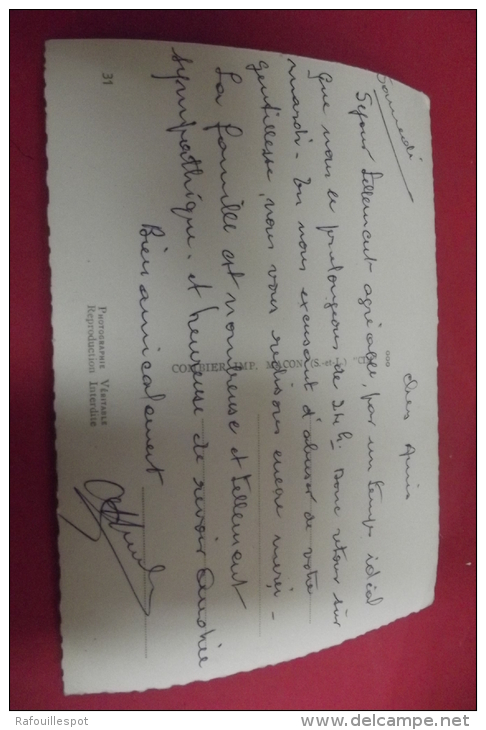 Samedi
Chers Amis
Séjour tellement agréable, par un temps idéal
que nous le prolongeons de 24h. Donc retour sûr
mardi - En nous excusant d'abuser de votre
gentillesse, nous vous redisons encore merci -
La famille est nombreuse et tellement
sympathique. et heureuse de revoir
Bien amicalement
COMBIER IMP. MACON (S.-et-L.)
PHOTOGRAPHIE VÉRITABLE
Reproduction Interdite
31
Rafouillespot
www.delcampe.net